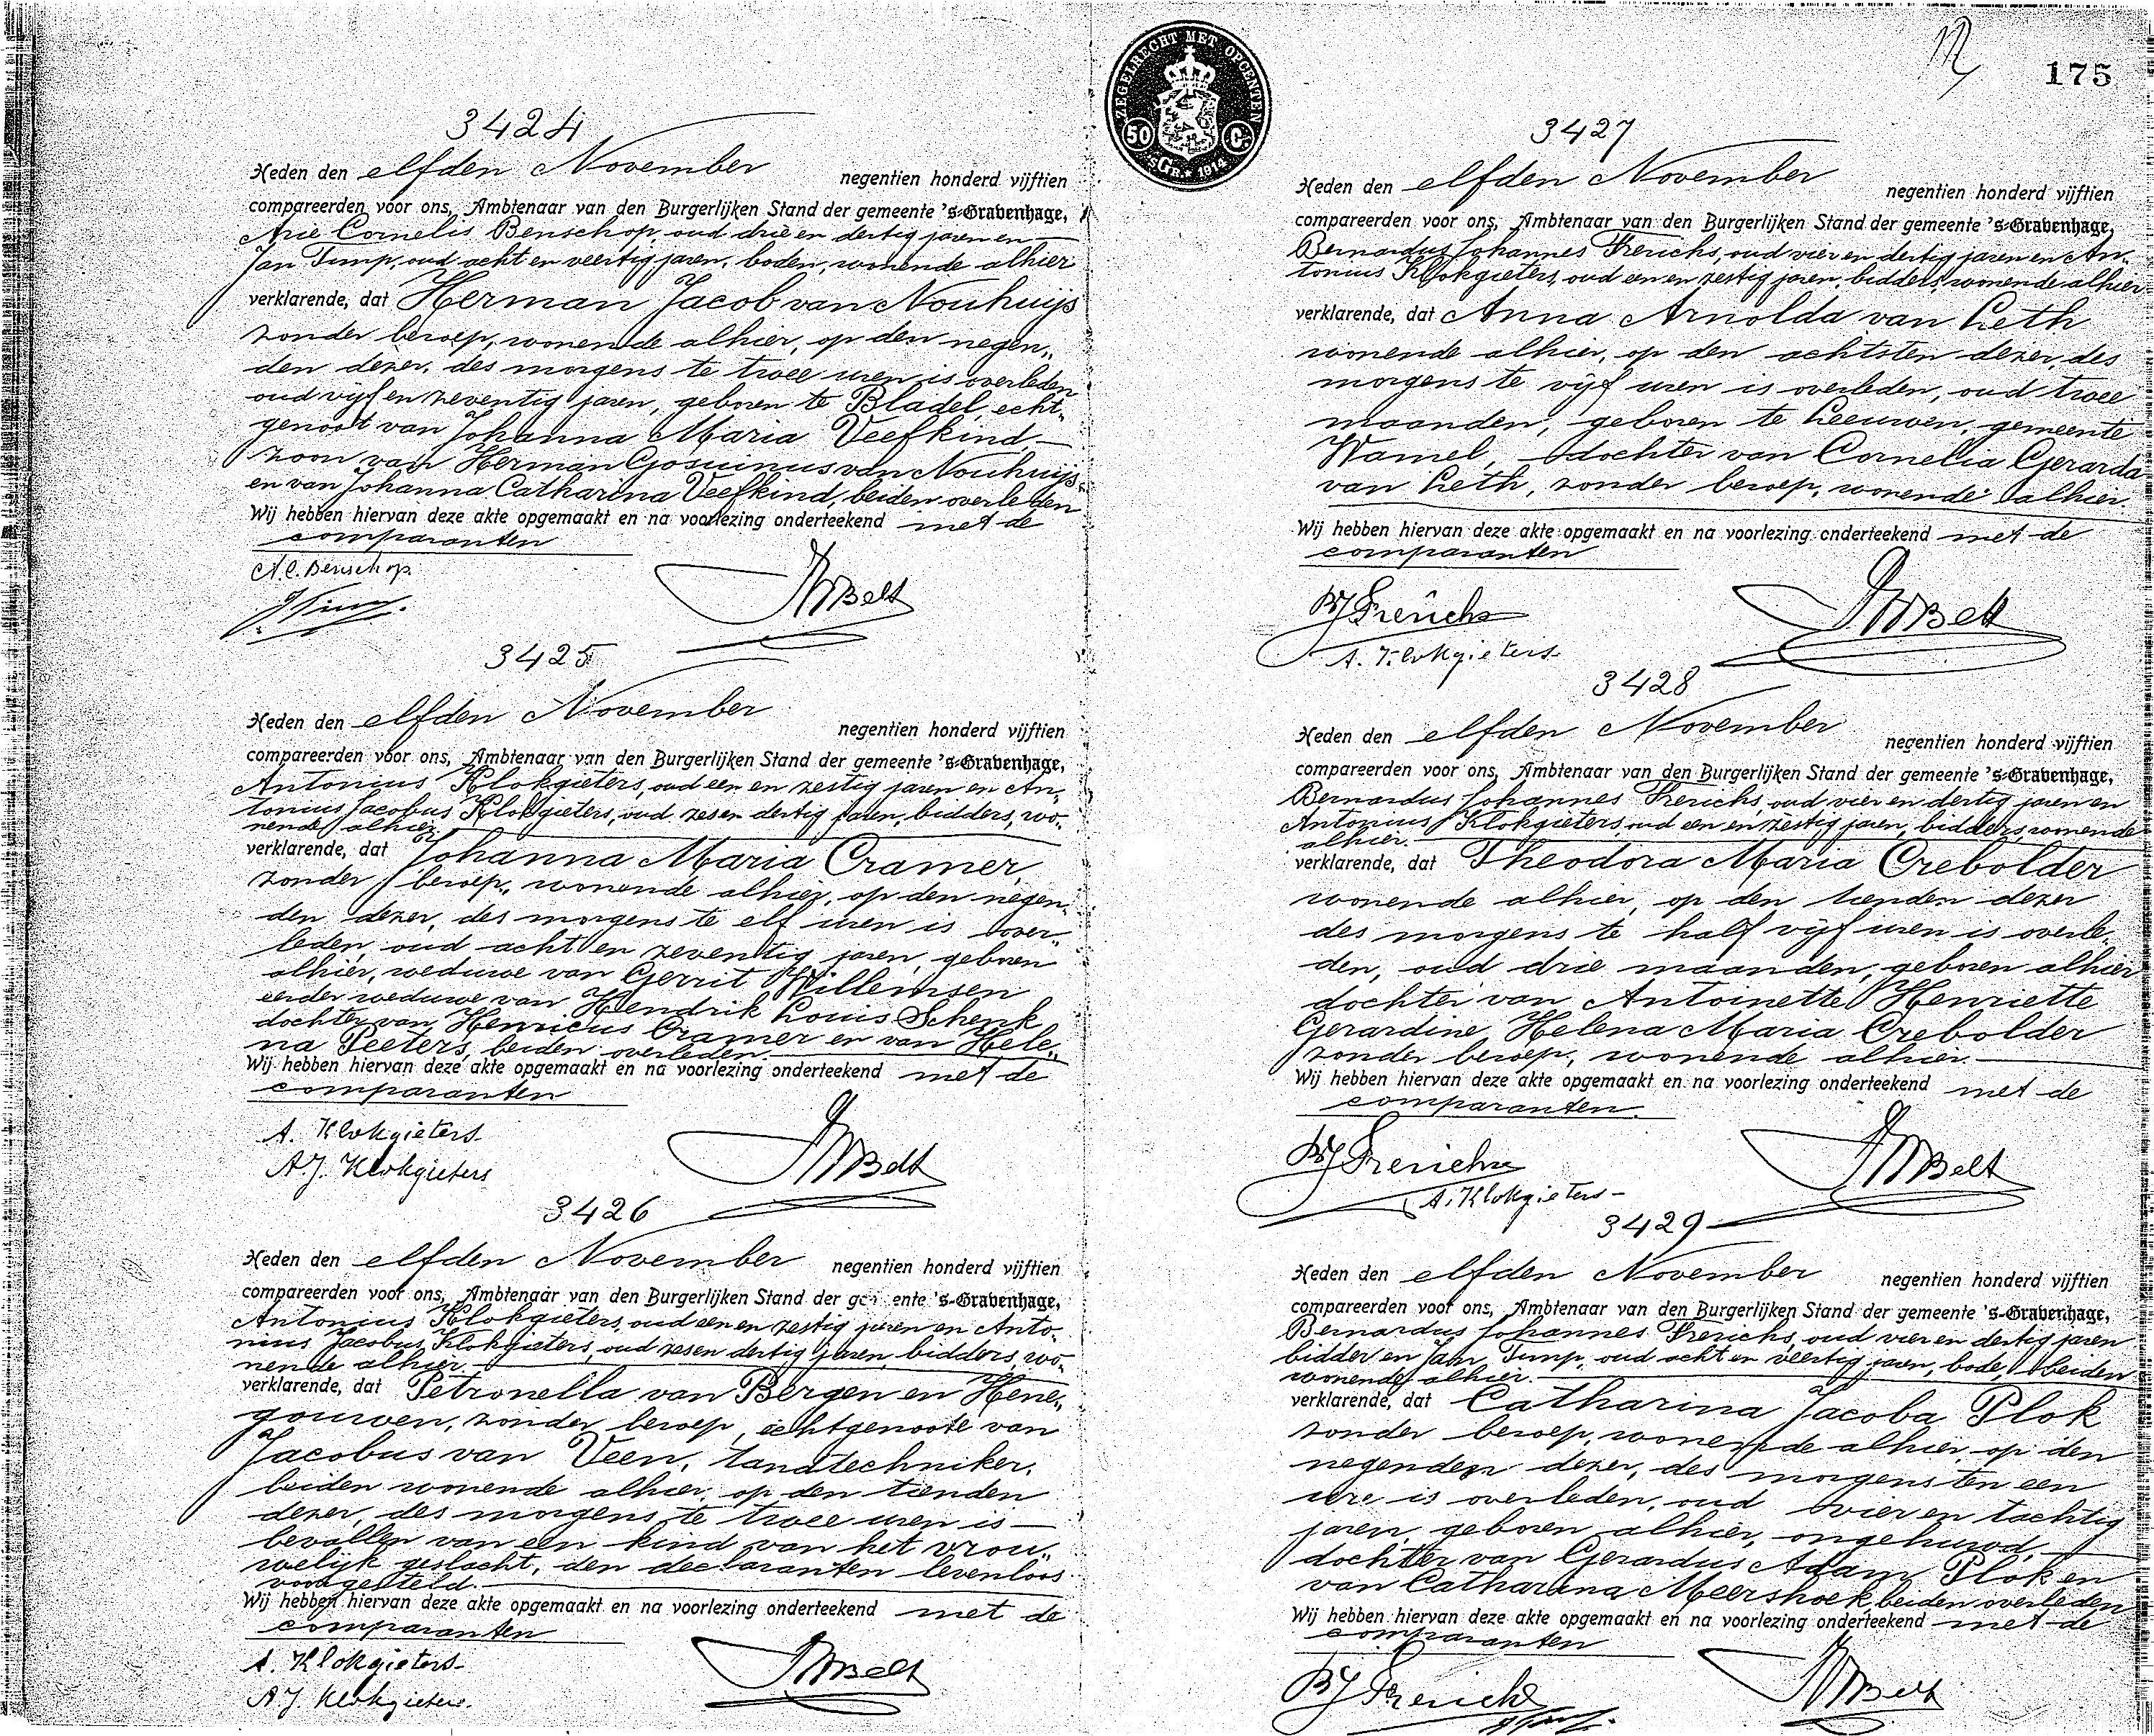 3424
Heden den elfden November negentien honderd vijftien
compareerden voor ons, Ambtenaar van den Burgerlijken Stand der gemeente 's-Gravenhage,
Arie Cornelis Benschop, oud drie en dertig jaren en
Jan Timp, oud acht en veertig jaren, boden, wonende alhier
verklarende, dat Herman Jacob van Nouhuijs
zonder beroep, wonende alhier, op den negen„
den dezer, des morgens te twee uren is overleden
oud vijf en zeventig jaren, geboren te Bladel, echt„
genoot van Johanna Maria Veefkind
zoon van Herman Gosuinus van Nouhuijs
en van Johanna Catharina Veefkind, beiden overleden
Wij hebben hiervan deze akte opgemaakt en na voorlezing onderteekend met de
comparanten
A.C. Benschop
3425
Heden den elfden November negentien honderd vijftien
compareerden voor ons, Ambtenaar van den Burgerlijken Stand der gemeente 's-Gravenhage,
Antonius Klokgieters, oud een en zestig jaren en An„
tonius Jacobus Klokgieters, oud zes en dertig jaren, bidders, wo„
nende alhier
verklarende, dat Johanna Maria Cramer,
zonder beroep, wonende alhier, op den negen„
den dezer, des morgens te elf uren is over„
leden, oud acht en zeventig jaren, geboren
alhier, weduwe van Gerrit Willemsen
eerder weduwe van Hendrik Louis Schenk
dochter van Henricus Cramer en van Hele„
na Peeters, beiden overleden.
Wij hebben hiervan deze akte opgemaakt en na voorlezing onderteekend met de
comparanten
A. Klokgieters
A.J. Klokgieters
3426
Heden den elfden November negentien honderd vijftien
compareerden voor ons, Ambtenaar van den Burgerlijken Stand der gemeente 's-Gravenhage,
Antonius Klokgieters, oud een en zestig jaren en Anto„
nius Jacobus Klokgieters, oud zes en dertig jaren, bidders, wo„
nende alhier
verklarende, dat Petronella van Bergen en Hene„
gouwen, zonder beroep, echtgenoote van
Jacobus van Veen, tandtechniker,
beiden wonende alhier, op den tienden
dezer, des morgens te twee uren is
bevallen van een kind van het vrou„
welijk geslacht, den declaranten levenloos
voorgesteld.
Wij hebben hiervan deze akte opgemaakt en na voorlezing onderteekend met de
comparanten
A. Klokgieters
A.J. Klokgieters
ZEGELRECHT MET OPCENTEN
50 C.
'sGR. 1914
175
3427
Heden den elfden November negentien honderd vijftien
compareerden voor ons, Ambtenaar van den Burgerlijken Stand der gemeente 's-Gravenhage,
Bernardus Johannes Frerichs, oud vier en dertig jaren en An„
tonius Klokgieters, oud een en zestig jaren, bidders, wonende alhier
verklarende, dat Anna Arnolda van Leth
wonende alhier, op den achtsten dezer, des
morgens te vijf uren is overleden, oud twee
maanden, geboren te Leeuwen, gemeente
Wamel, dochter van Cornelia Gerarda
van Leth, zonder beroep, wonende alhier.
Wij hebben hiervan deze akte opgemaakt en na voorlezing onderteekend met de
comparanten
BJ Frerichs
A. Klokgieters
3428
Heden den elfden November negentien honderd vijftien
compareerden voor ons, Ambtenaar van den Burgerlijken Stand der gemeente 's-Gravenhage,
Bernardus Johannes Frerichs, oud vier en dertig jaren en
Antonius Klokgieters, oud een en zestig jaren, bidders, wonende
alhier.
verklarende, dat Theodora Maria Crebolder
wonende alhier, op den tienden dezer
des morgens te half vijf uren is overle„
den, oud drie maanden, geboren alhier
dochter van Antoinette Henriette
Gerardine Helena Maria Crebolder
zonder beroep, wonende alhier.
Wij hebben hiervan deze akte opgemaakt en na voorlezing onderteekend met de
comparanten
BJ Frerichs
A. Klokgieters
3429
Heden den elfden November negentien honderd vijftien
compareerden voor ons, Ambtenaar van den Burgerlijken Stand der gemeente 's-Gravenhage,
Bernardus Johannes Frerichs, oud vier en dertig jaren
bidder en Jan Timp, oud acht en veertig jaren, bode, beiden
wonende alhier.
verklarende, dat Catharina Jacoba Plok
zonder beroep, wonende alhier, op den
negenden dezer, des morgens ten een
ure is overleden, oud vier en tachtig
jaren, geboren alhier, ongehuwd,
dochter van Gerardus Adam Plok en
van Catharina Meershoek, beiden overleden
Wij hebben hiervan deze akte opgemaakt en na voorlezing onderteekend met de
comparanten
BJ Frerichs